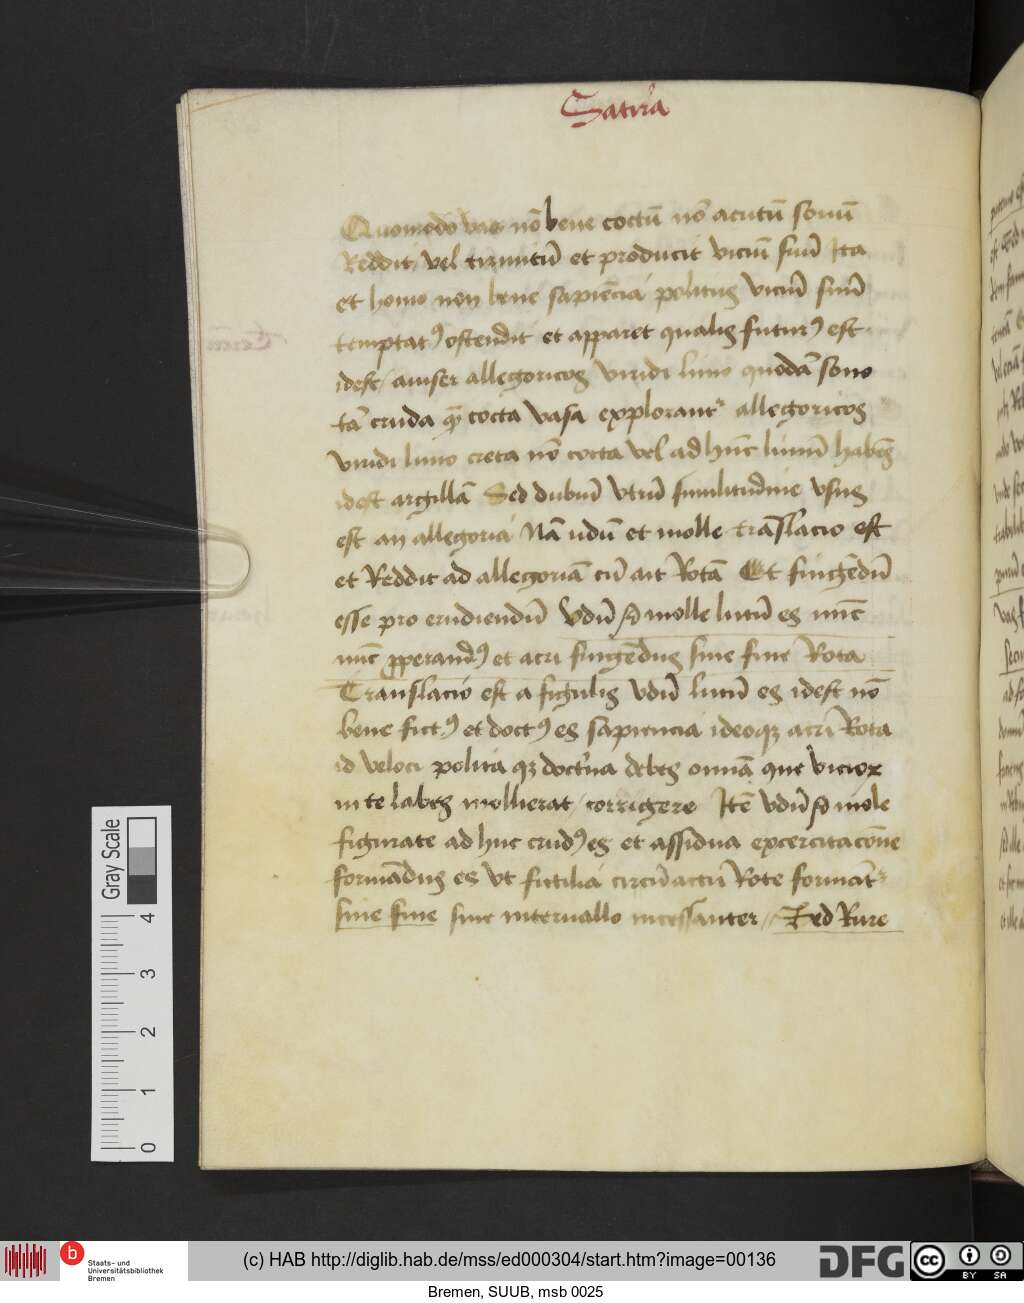 Satira
Quomodo vas nō bene coctū nō acutū sonū
Reddit vel tinnitū et producit viciū suū Ita
et homo non bene sapiēcia politus viciū suū
temptatꝰ ostendit et apparet qualis futurꝰ est
idest / auiser allegoricos viridi limo quodā sono
tā cruda qꝫ cocta vasa explorant᷑ allegoricos
viridi limo creta nō cocta vel adhuc limū habēs
idest argillā Sed dubiū vtrū similitudine vsus
est an allegoria Nā udū et molle trāslacio est
et Reddit ad allegoriā cū ait Rotā Et fingēdū
esse pro erudiendū Vdū & molle lutū es nūc
nūc ꝓperandꝰ et acri fingēdus sine fine Rota
Translacio est a figulis vdū lutū es idest nō
bene fictꝰ et doctꝰ es sapiencia ideoqꝫ acri Rota
id veloci polita qꝫ doctͥna debes omnā que vicioꝝ
in te labes mollierat / corrigere Itē vdū & mole
figurate ad huc crudꝰ es et assidua excercitacōne
formādus es vt fictilia circūactu Rote formāt᷑
sine fine sine interuallo incessanter // Sed Rure
Gray Scale
4
3
2
1
0
b
Staats- und
Universitätsbibliothek
Bremen
(c) HAB http://diglib.hab.de/mss/ed000304/start.htm?image=00136
DFG
cc
BY SA
Bremen, SUUB, msb 0025